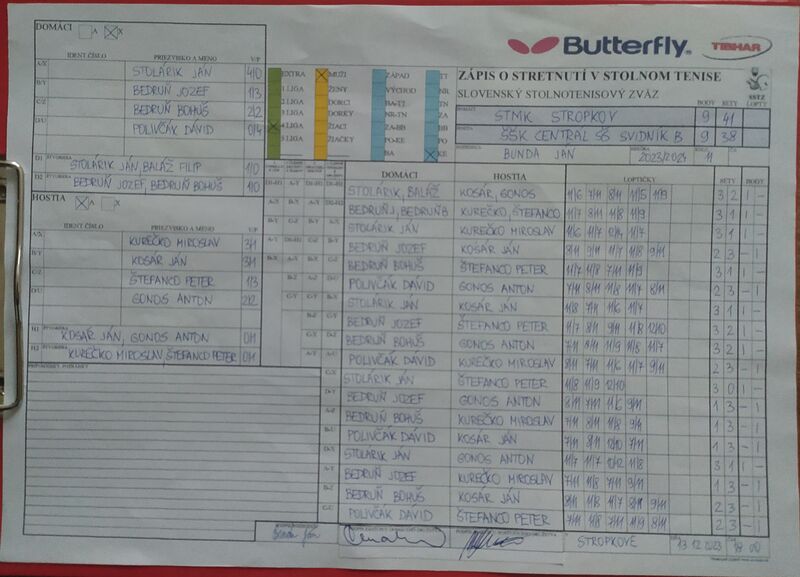 DOMÁCI A X
Butterfly TIBHAR
IDENT.ČÍSLO PRIEZVISKO A MENO V/P
A/X STOLÁRIK JÁN 4/0
B/Y BEDRUŇ JOZEF 1/3
C/Z BEDRUŇ BOHUŠ 2/2
D/U POLIVČÁK DÁVID 0/4
D1 ŠTVORHRA STOLÁRIK JÁN, BALÁŽ FILIP 1/0
D2 BEDRUŇ JOZEF, BEDRUŇ BOHUŠ 1/0
EXTRA MUŽI ZÁPAD TT
1.LIGA ŽENY VÝCHOD NR
2.LIGA DORCI BA-TT TN
3.LIGA DORKY NR-TN ZA
4.LIGA ŽIACI ZA-BB BB
5.LIGA ŽIAČKY PO-KE PO
BA KE
ZÁPIS O STRETNUTÍ V STOLNOM TENISE
SLOVENSKÝ STOLNOTENISOVÝ ZVÄZ
SSTZ
BODY SETY LOPTY
STMK STROPKOV 9 41
ŠŠK CENTRAL SŠ SVIDNÍK B 9 38
BUNDA JÁN 2023/2024 11
HOSTIA A X
IDENT.ČÍSLO PRIEZVISKO A MENO V/P
A/X KUREČKO MIROSLAV 3/1
B/Y KOSÁR JÁN 3/1
C/Z ŠTEFANCO PETER 1/3
D/U GONOS ANTON 2/2
H1 ŠTVORHRA KOSÁR JÁN, GONOS ANTON 0/1
H2 KUREČKO MIROSLAV, ŠTEFANCO PETER 0/1
DOMÁCI HOSTIA LOPTIČKY SETY BODY
STOLÁRIK, BALÁŽ KOSÁR, GONOS 11/6 7/11 8/11 11/5 11/9 3 2 1 -
BEDRUŇ J, BEDRUŇ B KUREČKO, ŠTEFANCO 11/7 8/11 11/8 11/9 3 1 1 -
STOLÁRIK JÁN KUREČKO MIROSLAV 11/6 11/7 12/14 11/7 3 1 1 -
BEDRUŇ JOZEF KOSÁR JÁN 8/11 9/11 11/7 11/8 9/11 2 3 - 1
BEDRUŇ BOHUŠ ŠTEFANCO PETER 11/7 11/8 7/11 11/9 3 1 1 -
POLIVČÁK DÁVID GONOS ANTON 7/11 8/11 11/8 11/7 8/11 2 3 - 1
STOLÁRIK JÁN KOSÁR JÁN 11/8 7/11 11/6 11/7 3 1 1 -
BEDRUŇ JOZEF ŠTEFANCO PETER 11/7 8/11 9/11 11/8 12/10 3 2 1 -
BEDRUŇ BOHUŠ GONOS ANTON 7/11 8/11 11/9 11/8 11/7 3 2 1 -
POLIVČÁK DÁVID KUREČKO MIROSLAV 8/11 7/11 11/6 11/7 9/11 2 3 - 1
STOLÁRIK JÁN ŠTEFANCO PETER 11/8 11/9 12/10 3 0 1 -
BEDRUŇ JOZEF GONOS ANTON 8/11 7/11 11/6 9/11 1 3 - 1
BEDRUŇ BOHUŠ KUREČKO MIROSLAV 7/11 8/11 11/8 9/11 1 3 - 1
POLIVČÁK DÁVID KOSÁR JÁN 7/11 8/11 12/10 7/11 1 3 - 1
STOLÁRIK JÁN GONOS ANTON 11/7 11/7 10/12 11/8 3 1 1 -
BEDRUŇ JOZEF KUREČKO MIROSLAV 7/11 11/8 7/11 9/11 1 3 - 1
BEDRUŇ BOHUŠ KOSÁR JÁN 9/11 11/8 11/7 8/11 9/11 2 3 - 1
POLIVČÁK DÁVID ŠTEFANCO PETER 7/11 11/8 7/11 11/9 8/11 2 3 - 1
Bunda Ján STROPKOVE 13.12.2023 18 00